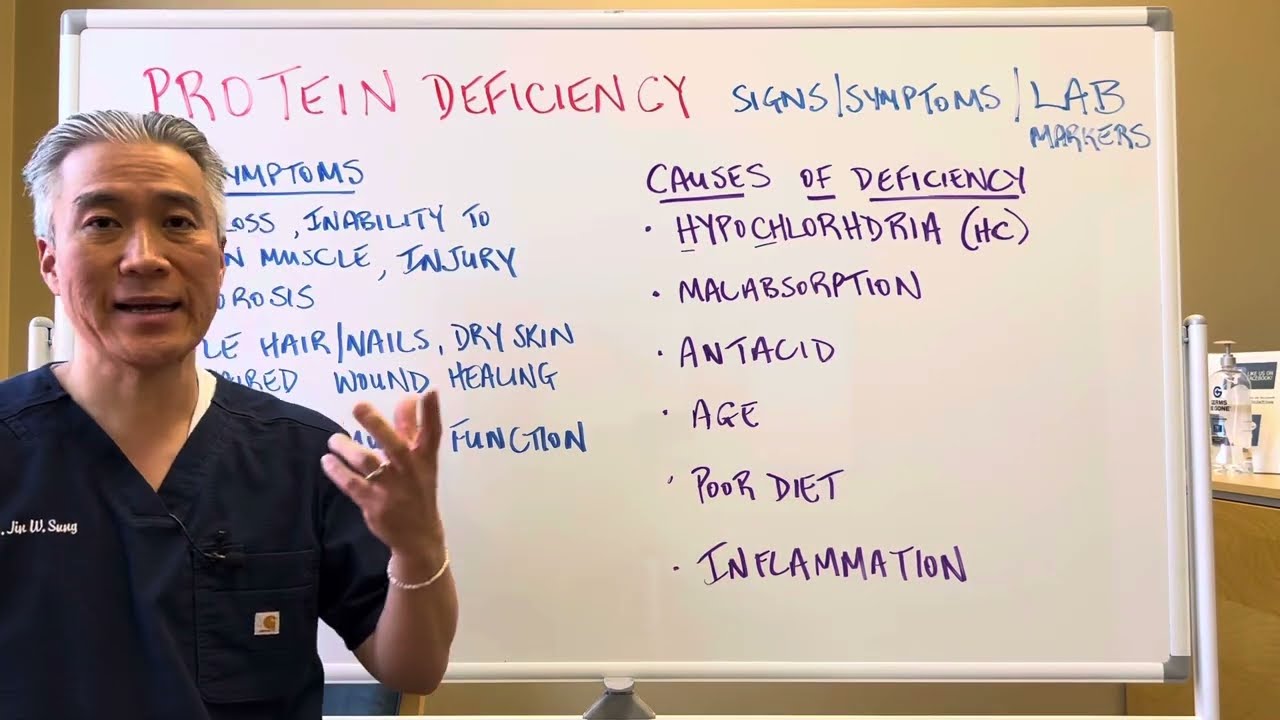 PROTEIN DEFICIENCY SIGNS/SYMPTOMS/LAB MARKERS
SYMPTOMS
LOSS, INABILITY TO
MUSCLE, INJURY
OROSIS
LE HAIR/NAILS, DRY SKIN
IRED WOUND HEALING
FUNCTION
CAUSES OF DEFICIENCY
· HYPOCHLORHDRIA (HC)
· MALABSORPTION
· ANTACID
· AGE
· POOR DIET
· INFLAMMATION
. Jin W. Sung
carhartt
LIKE US ON
FACEBOOK!
GERMS
BE GONE